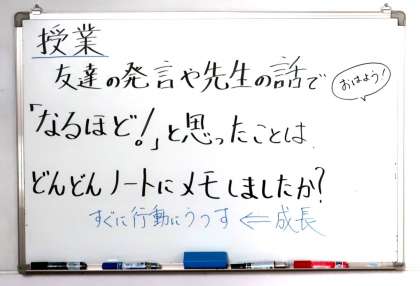 授業
友達の発言や先生の話で
おはよう!
「なるほど!」と思ったことは
どんどんノートにメモしましたか?
すぐに行動にうつす ⇐ 成長